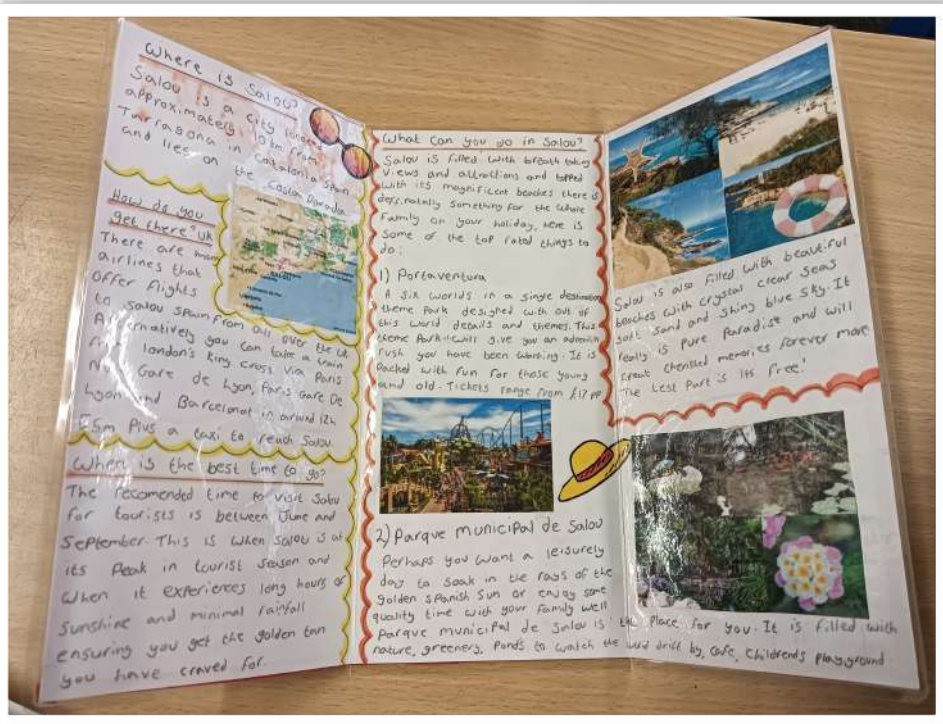 Where is Salou?
Salou is a city located
approximately 10km from
Tarragona in Catalonia Spain
and lies on
the Costa Daurada
How do you
get there? UK
There are many
airlines that
offer flights
to Salou Spain from all over the UK
Alternatively you can take a train
from london's King Cross via Paris
Gare de Lyon, Paris Gare De
Lyon and Barcelona in around 12h
55m Plus a taxi to reach Salou.
When is the best time to go?
The recomended time to visit Salou
for tourists is between June and
September. This is when Salou is at
its Peak in tourist season and
when it experiences long hours of
Sunshine and minimal rainfall
ensuring you get the golden tan
you have craved for.
What can you do in Salou?
Salou is filled with breath taking
views and attractions and topped
with its magnificent beaches there is
something for the whole
family on your holiday, here is
some of the top rated things to
do:
1) Portaventura
A six worlds in a single destination
theme Park designed with out of
this world details and themes. This
theme Park will give you an
rush you have been wanting. It is
Packed with fun for those young
and old. Tickets range from £17 pp
2) Parque municipal de Salou
Perhaps you want a leisurely
day to soak in the rays of the
golden Spanish Sun or enjoy some
quality time with your family well
Parque municipal de Salou is the Place for you. It is filled with
nature, greenery, Ponds to watch the drift by, Cafe, Playground
Salou is also filled with beautiful
beaches with crystal clear seas
soft sand and shing blue sky. It
really is pure Paradise and will
creat memories forever more
The best Part is its free!